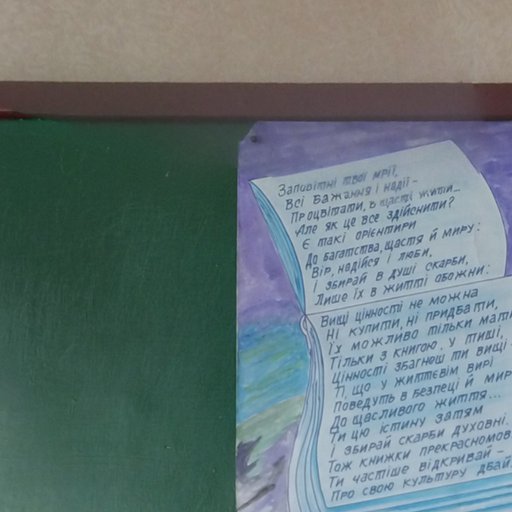 Заповітні твої мрії,
Всі бажання і надії –
Процвітати, в щасті жити...
Але як це все здійснити?
Є такі орієнтири
До багатства, щастя й миру:
Вір, надійся і люби,
І збирай в душі скарби,
Лише їх в житті обожни:
Вищі цінності не можна
Ні купити, ні придбати,
Їх можливо тільки мати
Тільки з книгою, у тиші,
Цінності збагнеш ти вищі
Ті, що у життєвім вирі
Поведуть в безпеці й мирі
До щасливого життя...
Ти цю істину затям
І збирай скарби духовні.
Тож книжки прекрасномов
Ти частіше відкривай –
Про свою культуру дбай.